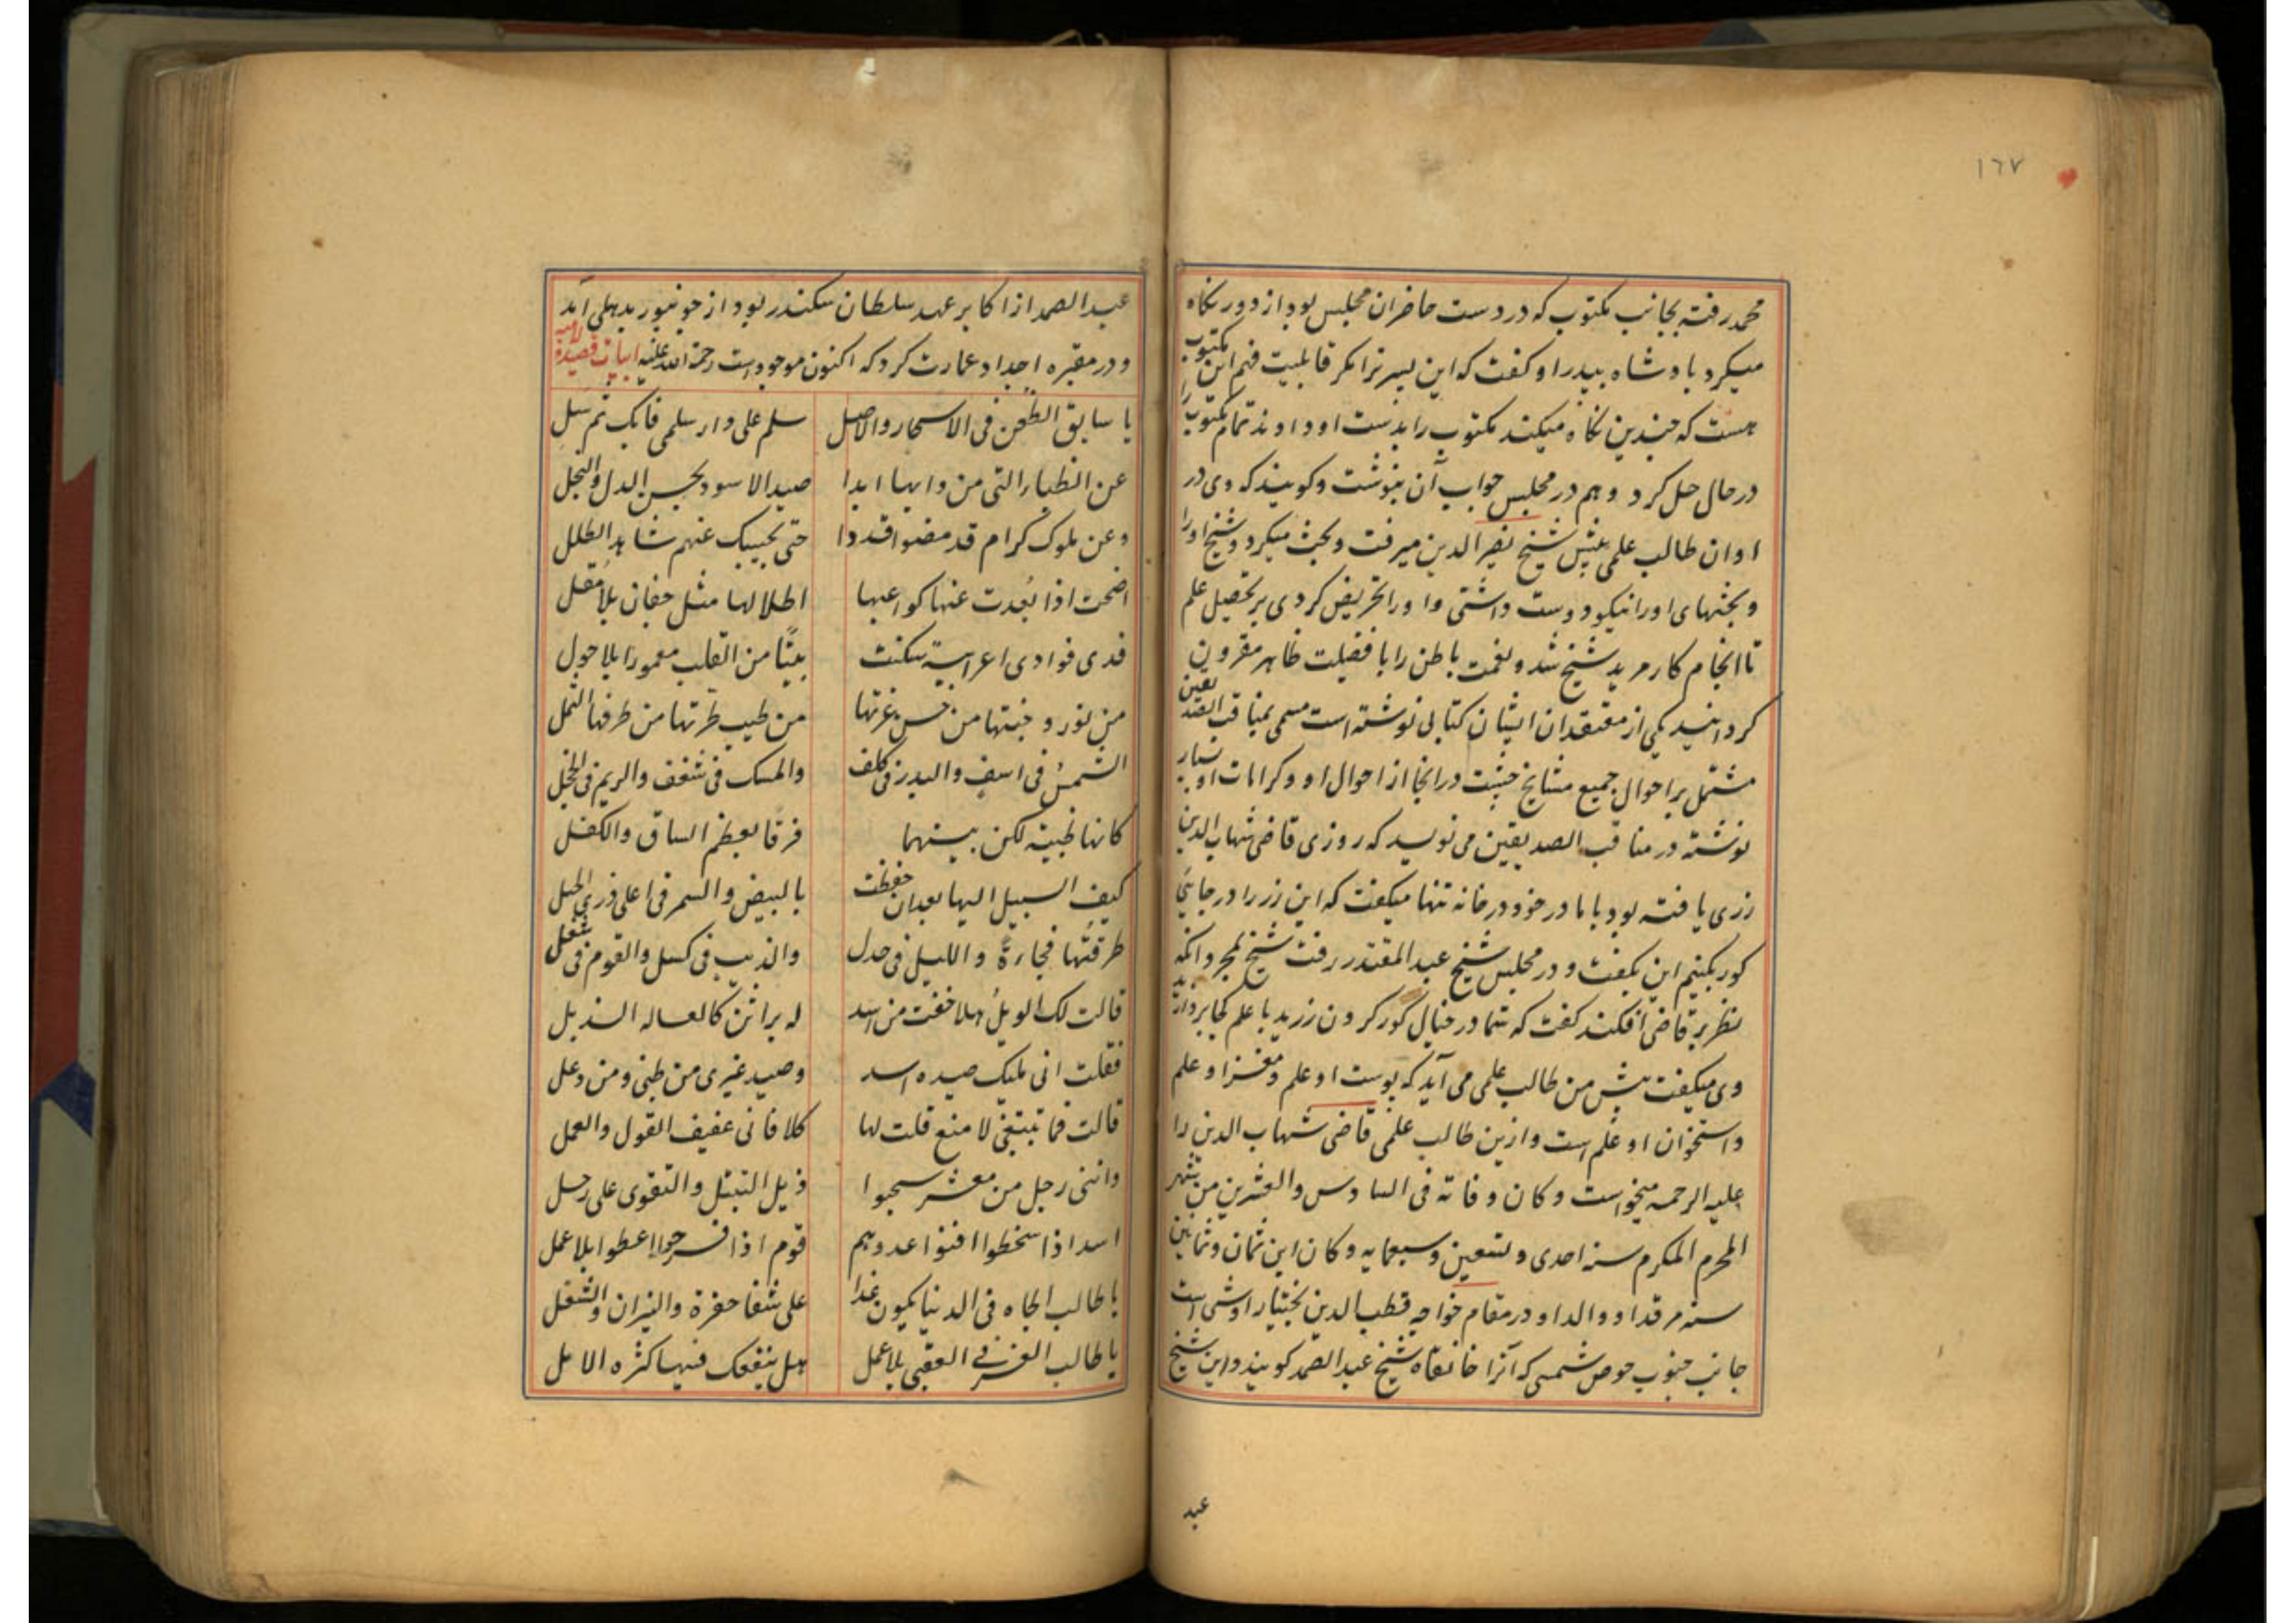 ١٦٧
محمد رفته بجانب مکتوب که در دست حاضران مجلس بود از دور نگاه
میکرد بادشاه بپدر او گفت که این پسر ترا مگر قابلیت فهم این مکتوب
هست که چندین نگاه میکند مکتوب را بدست او دادند تمام مکتوب را
در حال حل کرد و هم در مجلس جواب آن بنوشت و گویند که وی در
اوان طالب علمی پیش شیخ نصیر الدین میرفت و بحث میکرد و شیخ او را
و بحثهای او را نیکو دوست داشتی و او را تحریض کردی بر تحصیل علم
تا انجام کار مرید شیخ شد و نعمت باطن را با فضیلت ظاهر مقرون
گردانید یکی از معتقدان ایشان کتابی نوشته است مسمی بمناقب الصدیقین
مشتمل بر احوال جمیع مشایخ چشت در انجا از احوال او و کرامات او بسیار
نوشته در مناقب الصدیقین می نویسد که روزی قاضی شهاب الدین
زری یافته بود با مادر خود در خانه تنها میگفت که این زر را در جایی
کور بکنیم این بگفت و در مجلس شیخ عبد المقتدر رفت شیخ بمجرد آنکه
نظر بر قاضی افکند گفت که شما در خیال گور کردن زرید با علم کجا پردازید
وی میگفت پیش من طالب علمی می آید که پوست او علم و مغز او علم
و استخوان او علم است و ازین طالب علمی قاضی شهاب الدین را
علیه الرحمه میخواست و کان وفاته فی السادس والعشرین من شهر
المحرم المکرم سنه احدی و تسعین و سبعمایه و کان ابن ثمان و ثمانین
سنه مرقد او و والد او در مقام خواجه قطب الدین بختیار اوشی است
جانب جنوب حوض شمسی که آنرا خانقاه شیخ عبد الصمد گویند و این شیخ
عبد
عبد الصمد از اکابر عهد سلطان سکندر بود از جونپور بدهلی آمد
و در مقبره اجداد عمارت کرد که اکنون موجود است رحمة الله علیه ابیات قصیدة لامیه
یا سایق الظعن فی الاسحار والاصل سلم علی دار سلمی فابک ثم سل
عن الظباء التی من دابها ابدا صید الاسود بحسن الدل والنجل
وعن ملوک کرام قد مضوا قددا حتی یجیبک عنهم شاهد الطلل
اضحت اذا بعدت عنها کواعبها اطلالها مثل جفان بلا مقل
فدی فوادی اعرابیة سکنت بیتًا من القلب معمورا بلا حول
من نور وجنتها من حسن غرتها من طیب طرتها من طرفها الثمل
الشمس فی اسف والبدر فی کلف والمسک فی شغف والریم فی الخجل
کانها ظبیة لکن بینهما فرقا بعظم الساق والکفل
کیف السبیل الیها بعدان حفظت بالبیض والسمر فی اعلی ذری الجبل
طرقتها فجاءة واللیل فی جدل والذیب فی کسل والقوم فی شغل
قالت لک الویل هلا خفت من اسد له براثن کالعساله الذبل
فقلت انی ملیک صیده اسد وصید غیری من ظبی ومن وعل
قالت فما تبتغی لا منع قلت لها کلا فانی عفیف القول والعمل
واننی رجل من معشر سحبوا ذیل التبتل والتقوی علی زحل
اسد اذا سخطوا افنوا عدوهم قوم اذا فرحوا اعطوا بلا عمل
یا طالب الجاه فی الدنیا یکون غدا علی شفا حفرة والنیران والشعل
یا طالب العز فی العقبی بلا عمل هل ینفعک فیها کثره الامل